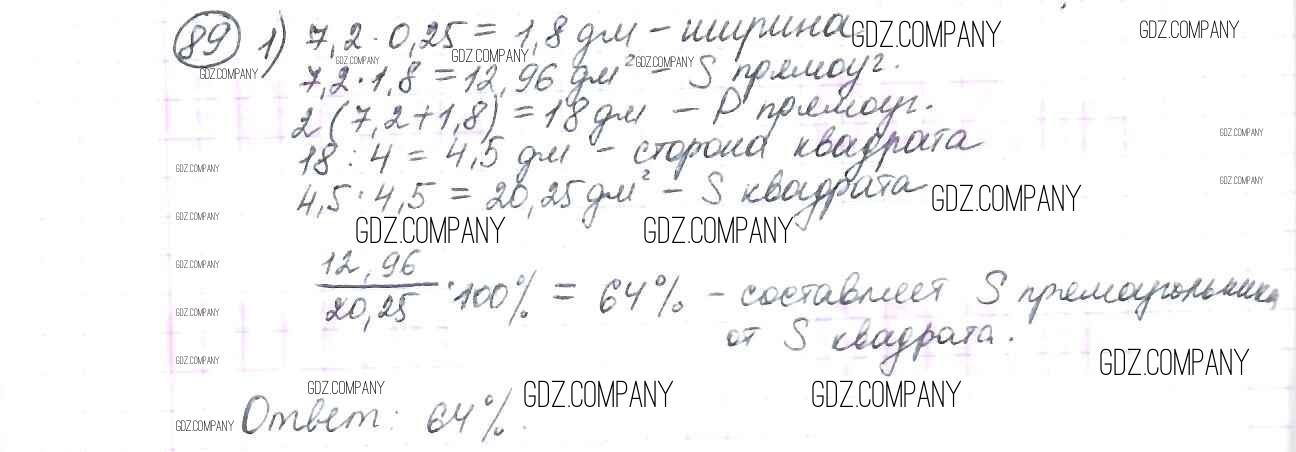 89 1) 7,2 · 0,25 = 1,8 дм – ширина GDZ.COMPANY GDZ.COMPANY
GDZ.COMPANY GDZ.COMPANY GDZ.COMPANY GDZ.COMPANY
7,2 · 1,8 = 12,96 дм² – S прямоуг.
2 (7,2 + 1,8) = 18 дм – P прямоуг.
GDZ.COMPANY
18 : 4 = 4,5 дм – сторона квадрата
GDZ.COMPANY GDZ.COMPANY
4,5 · 4,5 = 20,25 дм² – S квадрата GDZ.COMPANY
GDZ.COMPANY GDZ.COMPANY GDZ.COMPANY
GDZ.COMPANY
12,96
20,25 · 100% = 64% – составляет S прямоугольника
GDZ.COMPANY
от S квадрата.
GDZ.COMPANY GDZ.COMPANY
GDZ.COMPANY GDZ.COMPANY GDZ.COMPANY
GDZ.COMPANY Ответ: 64%.